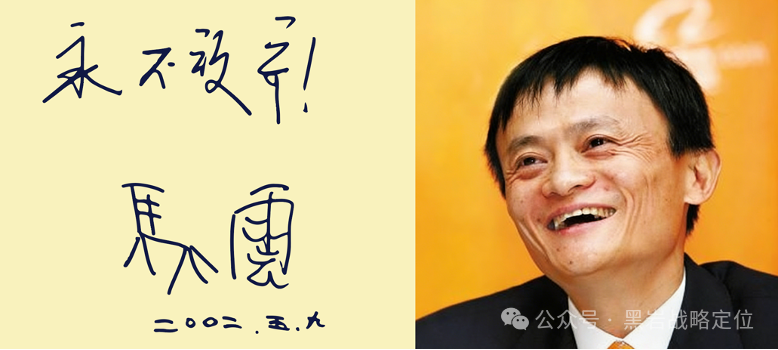 永不放弃!
馬雲
二〇〇二.五.九
公众号 · 黑岩战略定位